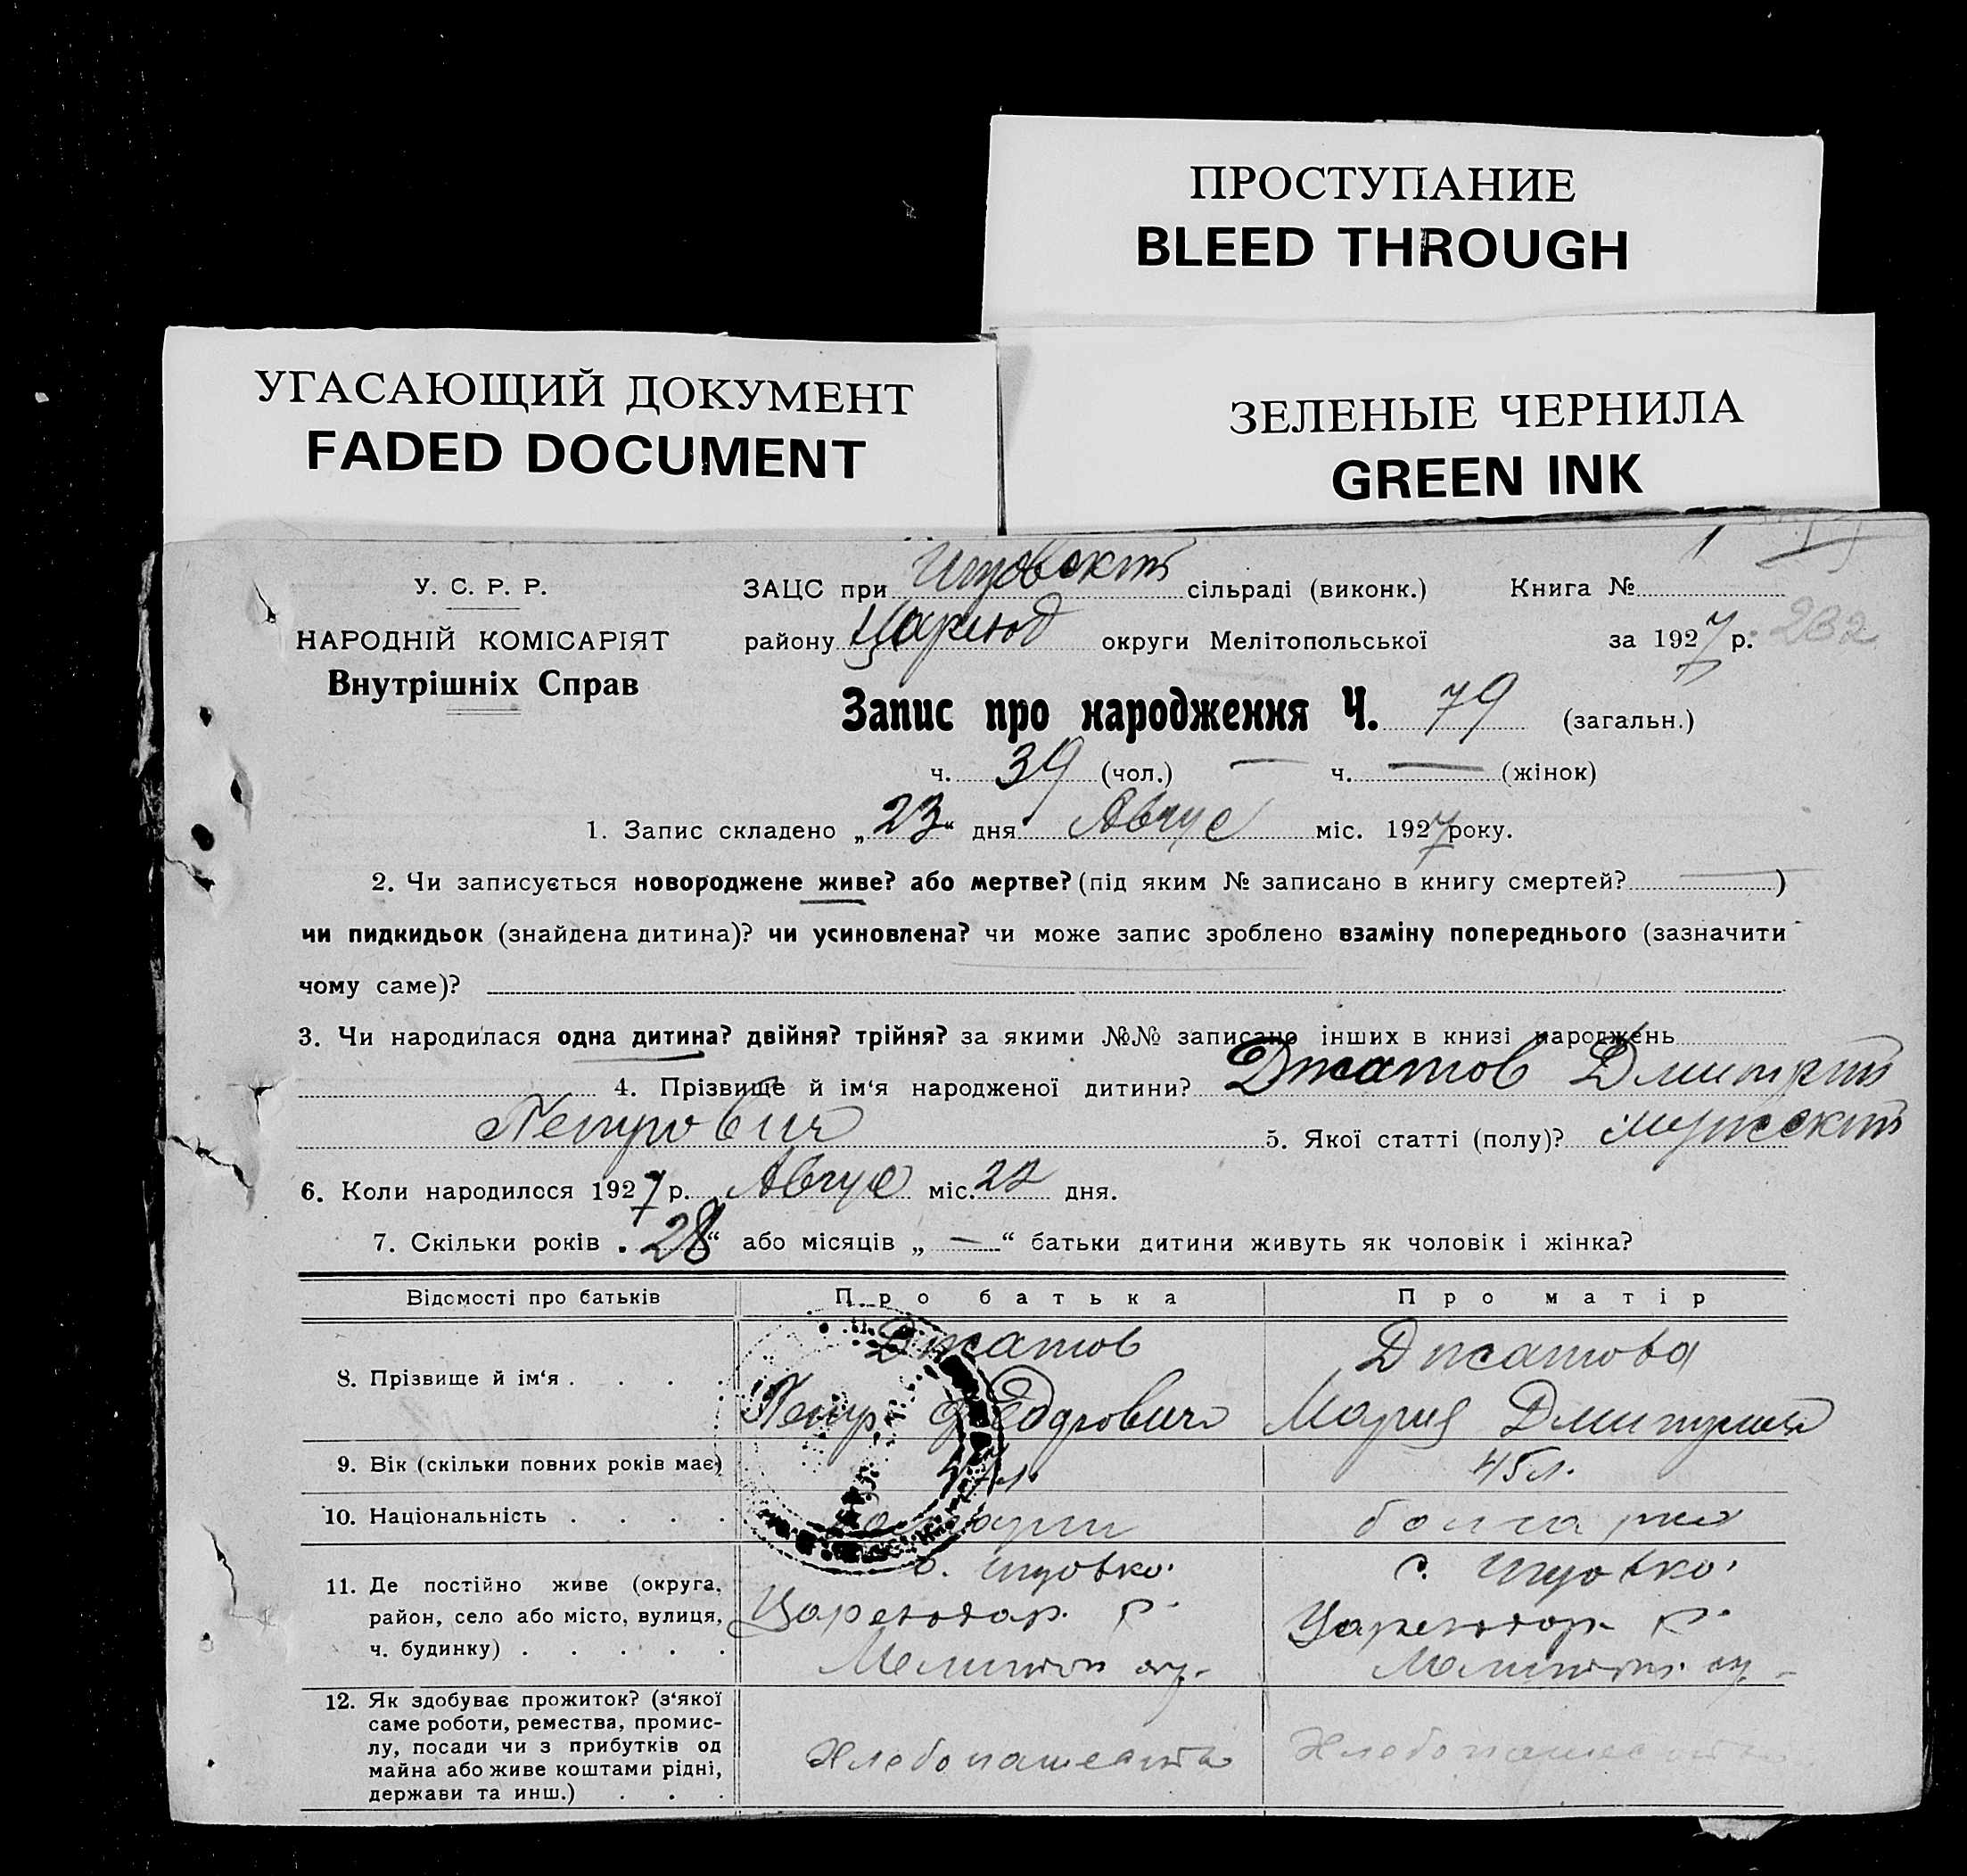 ПРОСТУПАНИЕ
BLEED THROUGH
УГАСАЮЩИЙ ДОКУМЕНТ
FADED DOCUMENT
ЗЕЛЕНЫЕ ЧЕРНИЛА
GREEN INK
1
У. С. Р. Р.
НАРОДНІЙ КОМІСАРІЯТ
Внутрішніх Справ
ЗАЦС при сільраді (виконк.) Книга №
району округи Мелітопольської за 1927 р. 232
Запис про народження Ч. 79 (загальн.)
ч. 39 (чол.) — ч. — (жінок)
1. Запис складено „23“ дня Авгус міс. 1927 року.
2. Чи записується новороджене живе? або мертве? (під яким № записано в книгу смертей? — )
чи пидкидьок (знайдена дитина)? чи усиновлена? чи може запис зроблено взаміну попереднього (зазначити
чому саме)?
3. Чи народилася одна дитина? двійня? трійня? за якими №№ записано інших в книзі народжень
4. Прізвище й ім‘я народженої дитини? Джатов Дмитрий
Петрович 5. Якої статті (полу)? мужский
6. Коли народилося 1927 р. Авгус міс. 22 дня.
7. Скільки років „28“ або місяців „ — “ батьки дитини живуть як чоловік і жінка?
Відомості про батьків Про батька Про матір
8. Прізвище й ім‘я . . . . Джатов Джатова
Петр Фёдрович Мария Дмитрий
9. Вік (скільки повних років має) 45 л.
10. Національність . . . . болгарка
11. Де постійно живе (округа,
район, село або місто, вулиця,
ч. будинку) . . . . .
с.
р.
Мелитоп ок.
с.
р.
Мелитоп. ок.
12. Як здобуває прожиток? (з‘якої
саме роботи, ремества, промис-
лу, посади чи з прибутків од
майна або живе коштами рідні,
держави та инш.) . . .
Хлебопашество
Хлебопашество